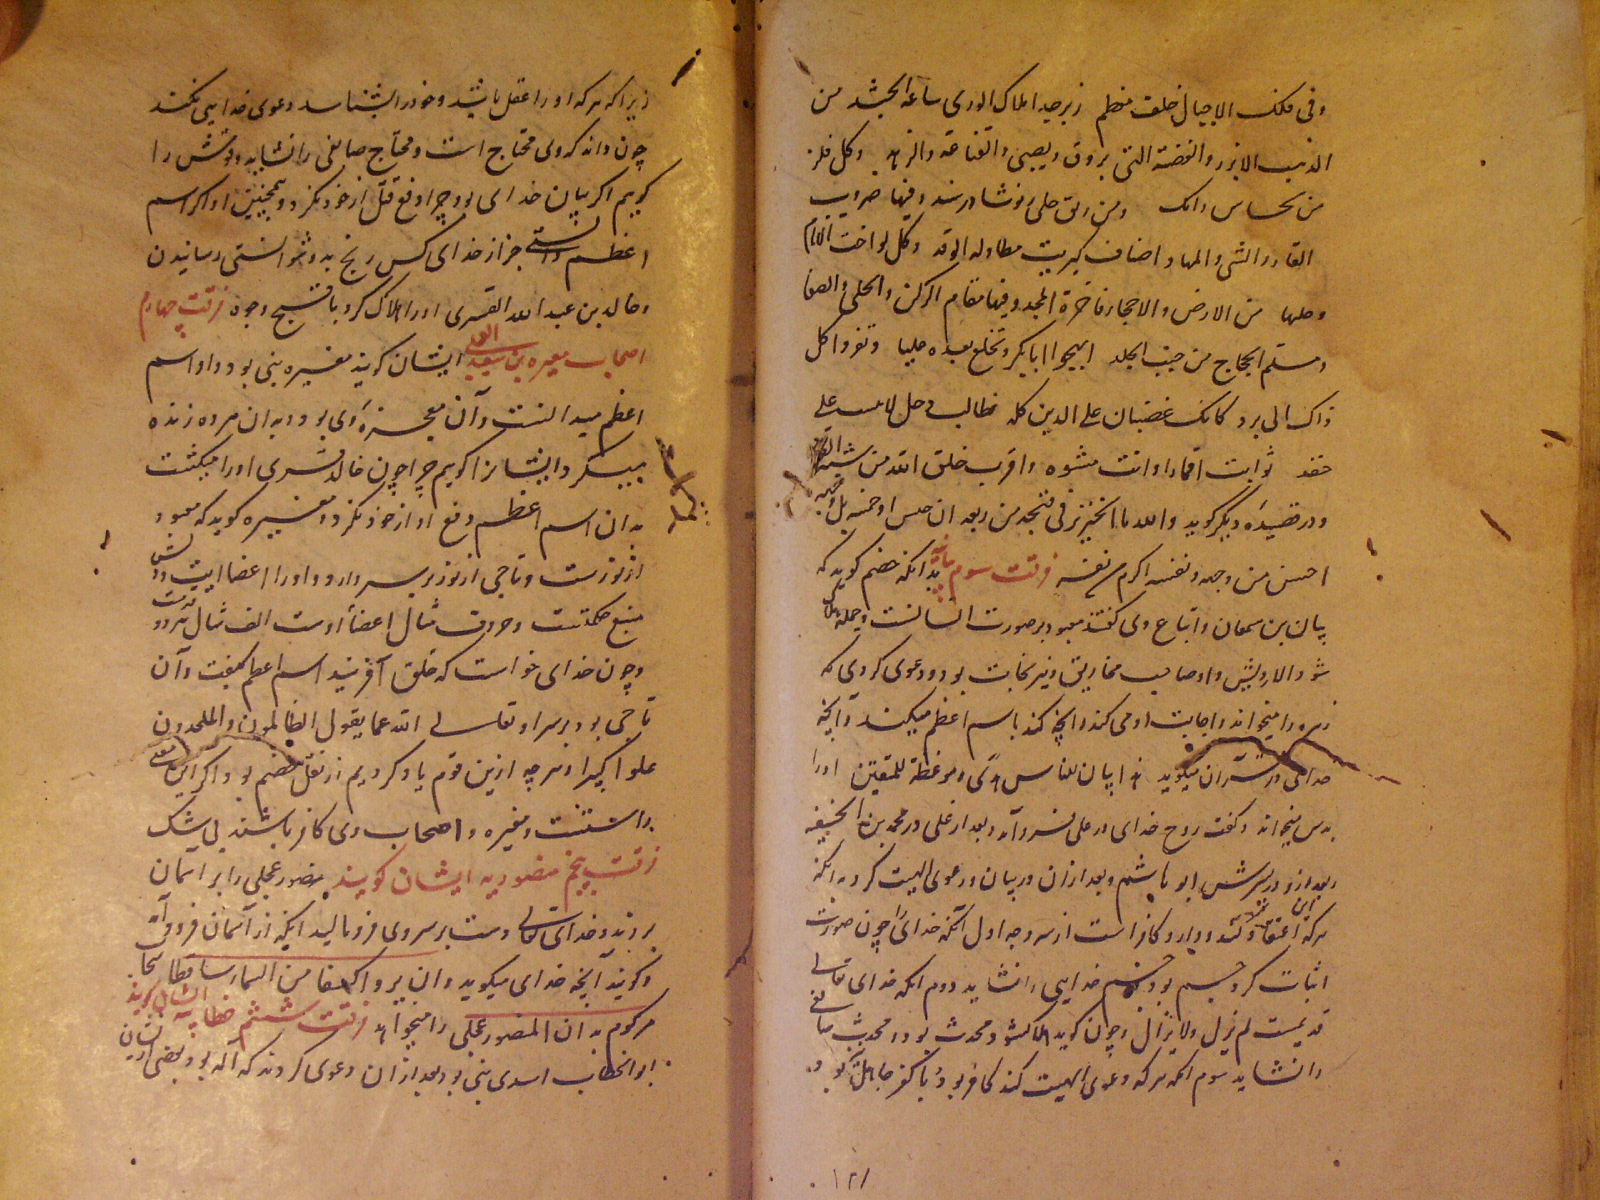 وفی فلک الاجبال خلف مقطم زبرجد املاک الوری ساعة الحشد من
الذهب الابریز والفضة التی بروق ویصبی والقناعة والزهد وکل فلز
من نحاس وانک ومن زیبق حلی ونوشادر سند وفیها ضروب
القار والشب والمها واصناف کبریت مطاوله الوقد وکل یواقیت الانام
وحلیها من الارض والاحجار فاخرة المجد وفیها مقام الرکن والحلی والصفا
ومستلم الحجاج من جنة الخلد اتهجوا ابابکر وتخلع بعده علیا وتعزوا کل
ذاک الی برد کانک غضبان علی الدین کله وطالب دحل لا یبیت علی
حقد ثوابت اقمارا وانت مشوه واقرب خلق الله من شبه القرد
ودر قصیده دیگر گوید والله ما الخنزیر فی قبحه من ربعه ان حسن او خمسه بل وجهه
احسن من وجهه ونفسه اکرم من نفسه فرقت سوم بیانیه بدانکه خصم گوید که
بیان بن سمعان واتباع وی گفتند معبود بر صورت انسانست وجمله هلاک
شود الا رویش واو صاحب مخاریق ونیرنجات بود ودعوی کردی که
زهره را میخواند واجابت او می کند وانچه کند باسم اعظم میکند وآنچه
خدای در قرآن میگوید هذا بیان للناس وهدی وموعظة للمتقین اورا
بدین میخواند وگفت روح خدای در علی فرود آمد وبعد از علی در محمد بن الحنفیه
وبعد از او در پسرش ابو هاشم وبعد از آن در بیان ودعوی الهیت کرد بدانکه
هرکه این اعتقاد دارد کافر است از سه وجه اول آنکه خدایرا چون صورت
اثبات کرد جسم بود وجسم خدایی را نشاید دوم آنکه خدای تعالی
قدیمست لم یزل ولا یزال وچون گوید هلاک شود محدث بود ومحدث صانعی
را نشاید سوم آنکه هرکه دعوی الهیت کند کافر بود با کفر جاهل بود و
۱۲۱
زیرا که هرکه او را عقل باشد وخود را بشناسد دعوی خدایی نکند
چون داند که وی محتاج است ومحتاج صانعی را نشاید وقومش را
گویم اگر بیان خدای بود چرا دفع قتل از خود نکرد وهمچنین او اگر اسم
اعظم دانستی جز از خدای کس رنج بدو نتوانستی رسانیدن
وخالد بن عبد الله القسری او را هلاک کرد باقبح وجوه فرقت چهارم
اصحاب مغیره بن سعید العجلی ایشان گویند مغیره نبی بود واو اسم
اعظم میدانست وآن معجزه وی بود وبدان مرده زنده
میکرد وایشانرا گویم چرا چون خالد قسری او را میکشت
بدان اسم اعظم دفع او از خود نکرد ومغیره گوید که معبود
از نورست وتاجی از نور بر سر دارد واو را اعضا است ودلش
منبع حکمتست وحروف مثال اعضأ اوست الف مثال
وچون خدای خواست که خلق آفریند اسم اعظم بگفت وآن
تاجی بود بر سر او تعالی الله عما یقول الظالمون والملحدون
علوا کبیرا وهرچه ازین قوم یاد کردیم از نقل خصم بود واگر این معنی
راستست ومغیره واصحاب وی کافر باشند بی شک
فرقت پنجم منصوریه ایشان گویند منصور عجلی را بر آسمان
بردند وخدای تعالی دست بر سر وی فرو مالید آنگه از آسمان فرود آمد
وگویند آنچه خدای میگوید وان یروا کسفا من السماء ساقطا یقولوا سحاب
مرکوم بدان المنصور عجلی را میخواهد فرقت ششم خطابیه ایشان گویند
ابو الخطاب اسدی نبی بود وبعد از آن دعوی کردند که اله بود وبعضی ازیشان